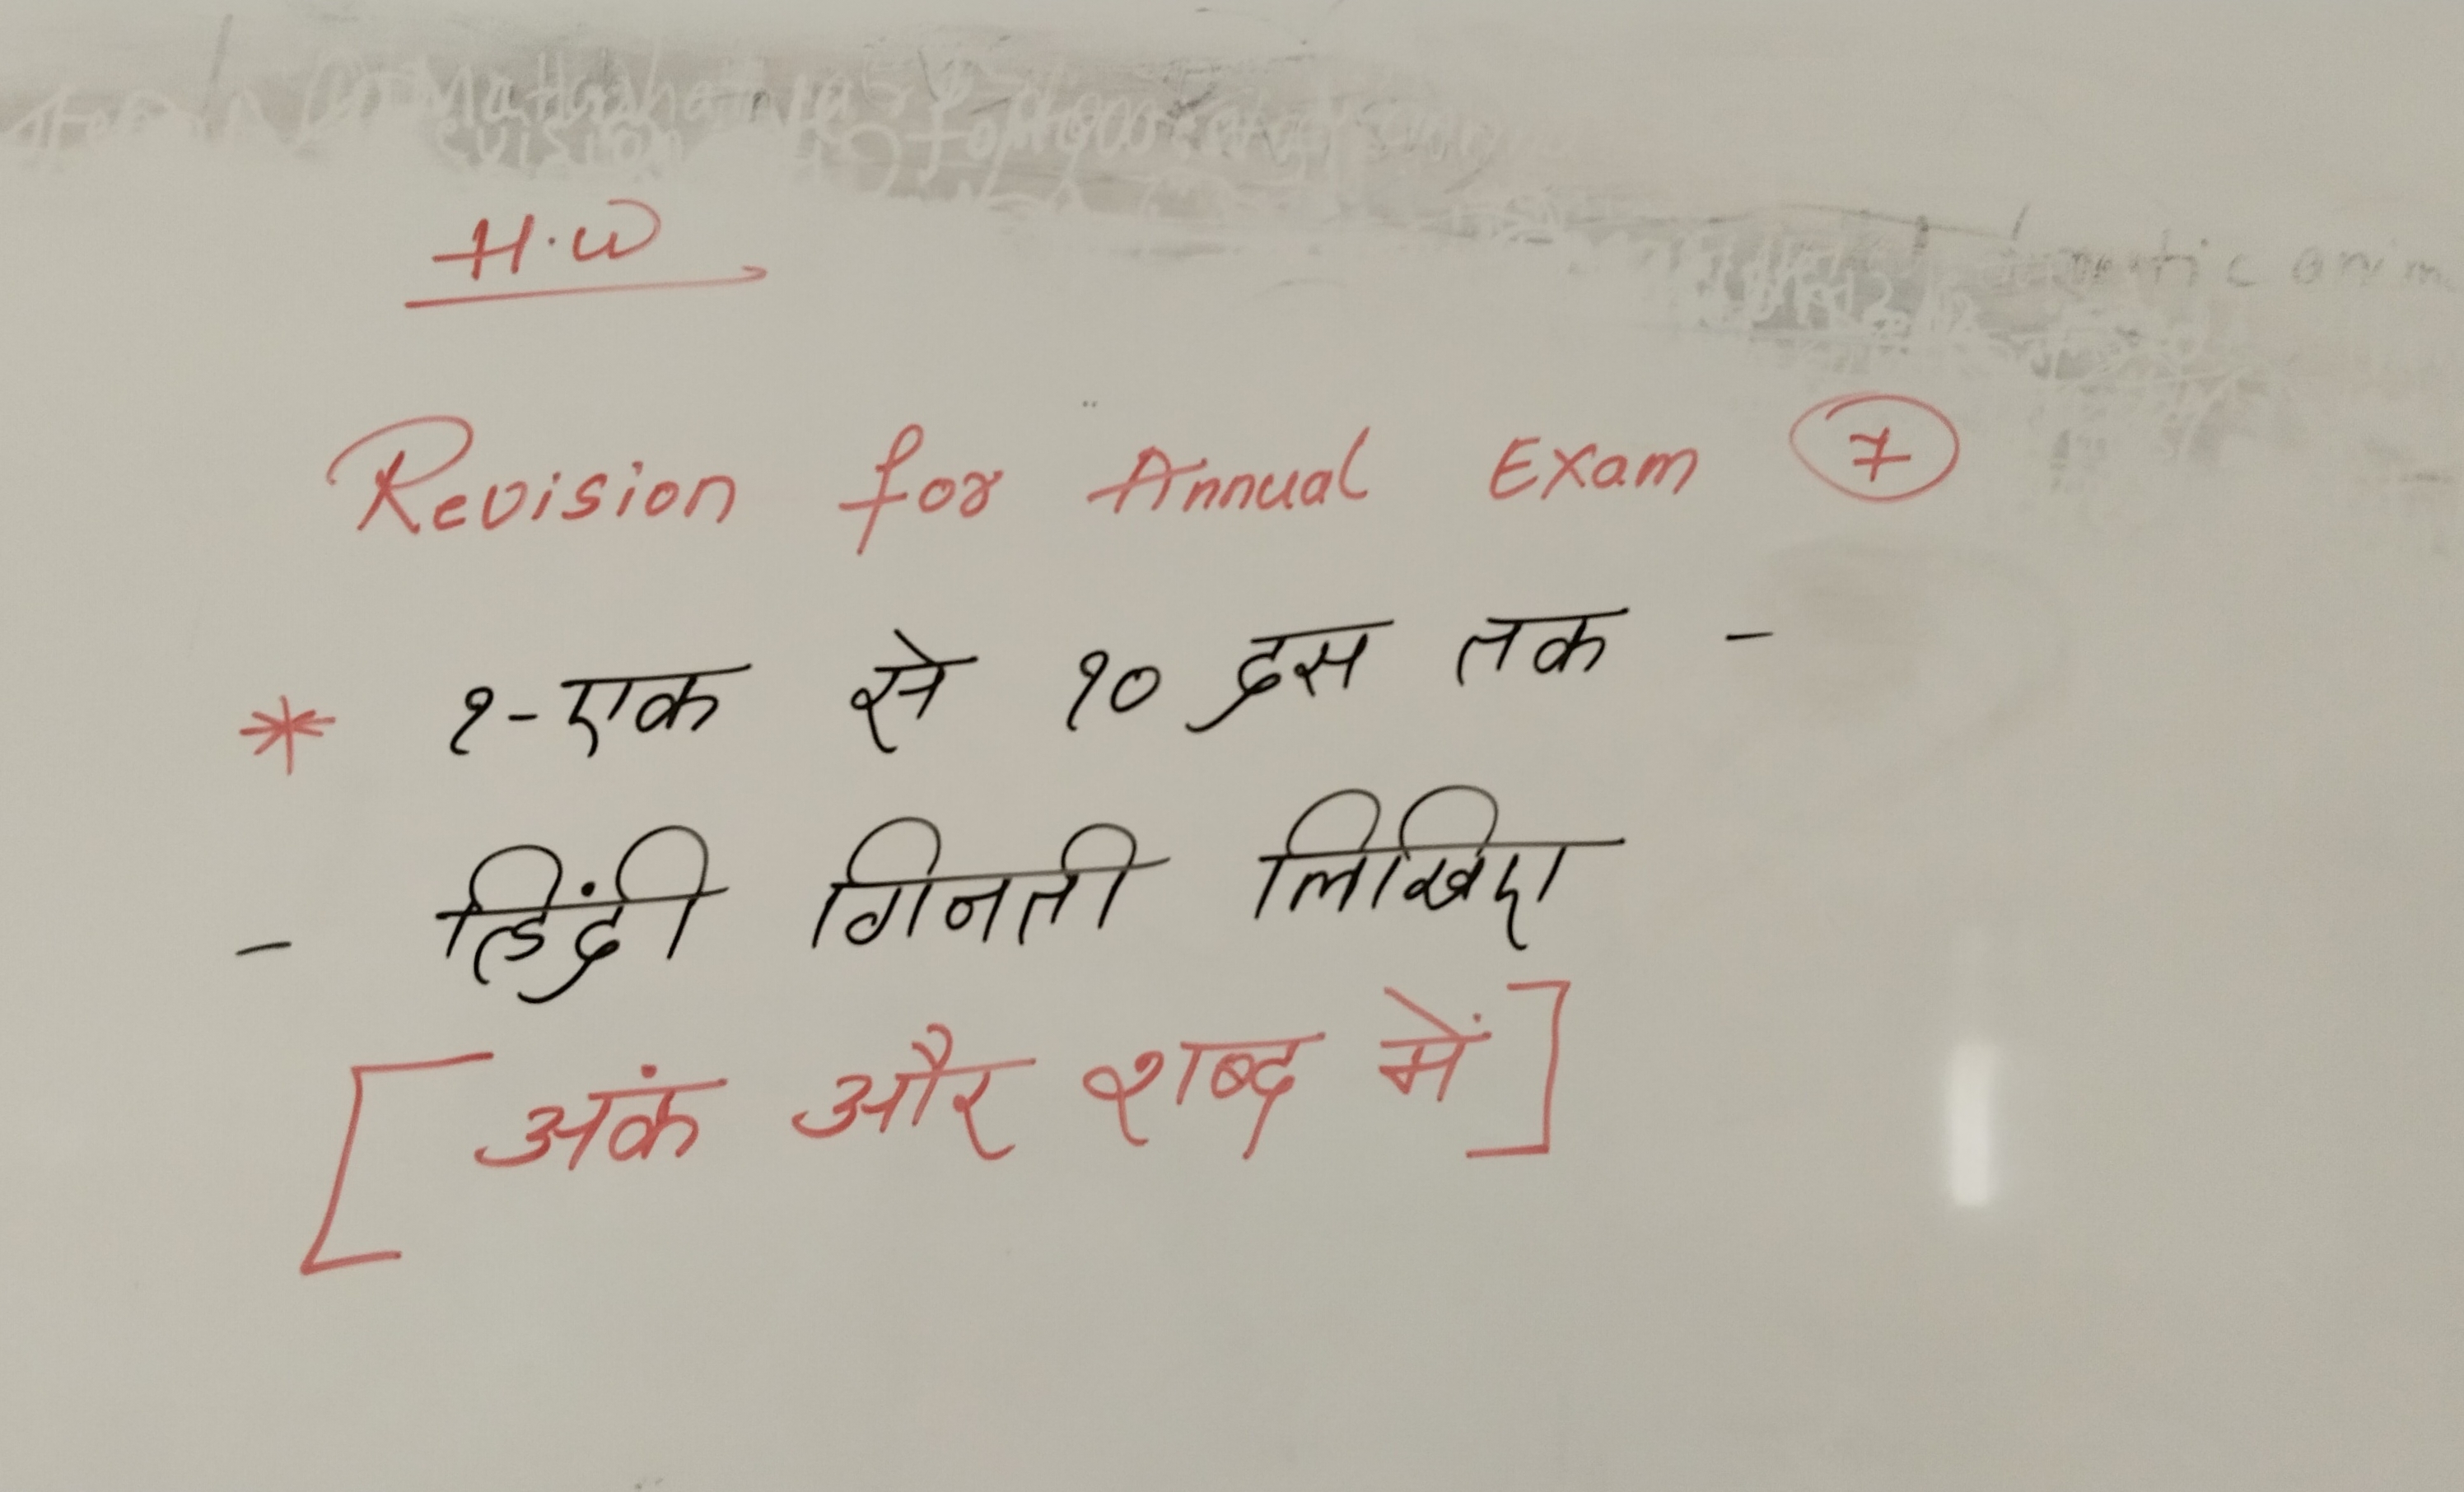 H.W
Revision for Annual Exam 7
* १-एक से १० दस तक -
- हिंदी गिनती लिखिए
[ अंक और शब्द में ]